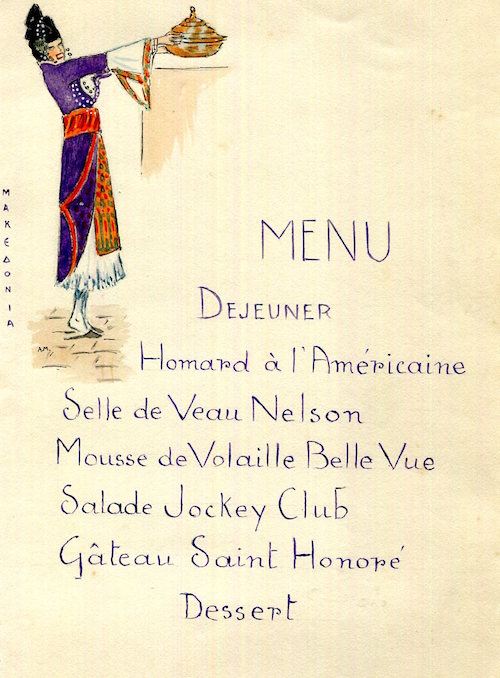 MAKEDONIA
MENU
DEJEUNER
Homard à l'Américaine
Selle de Veau Nelson
Mousse de Volaille Belle Vue
Salade Jockey Club
Gâteau Saint Honoré
Dessert
A.M.